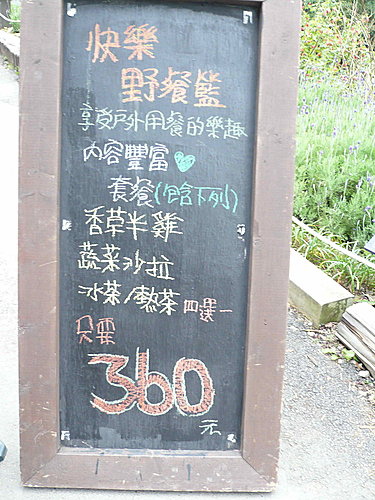 快樂
野餐籃
享受戶外用餐的樂趣
內容豐富
套餐(包含下列)
香草半雞
蔬菜沙拉
冰茶/熱茶 四選一
只要
360
元